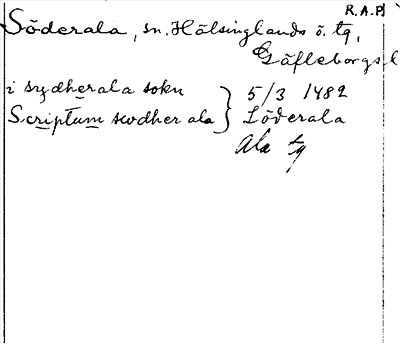 R.A.P.
Söderala, sn. Hälsinglands ö. tg,
Gäfleborgs l
i sydherala sokn } 5/3 1482
Scriptum swdher ala } Söderala
Ala tg